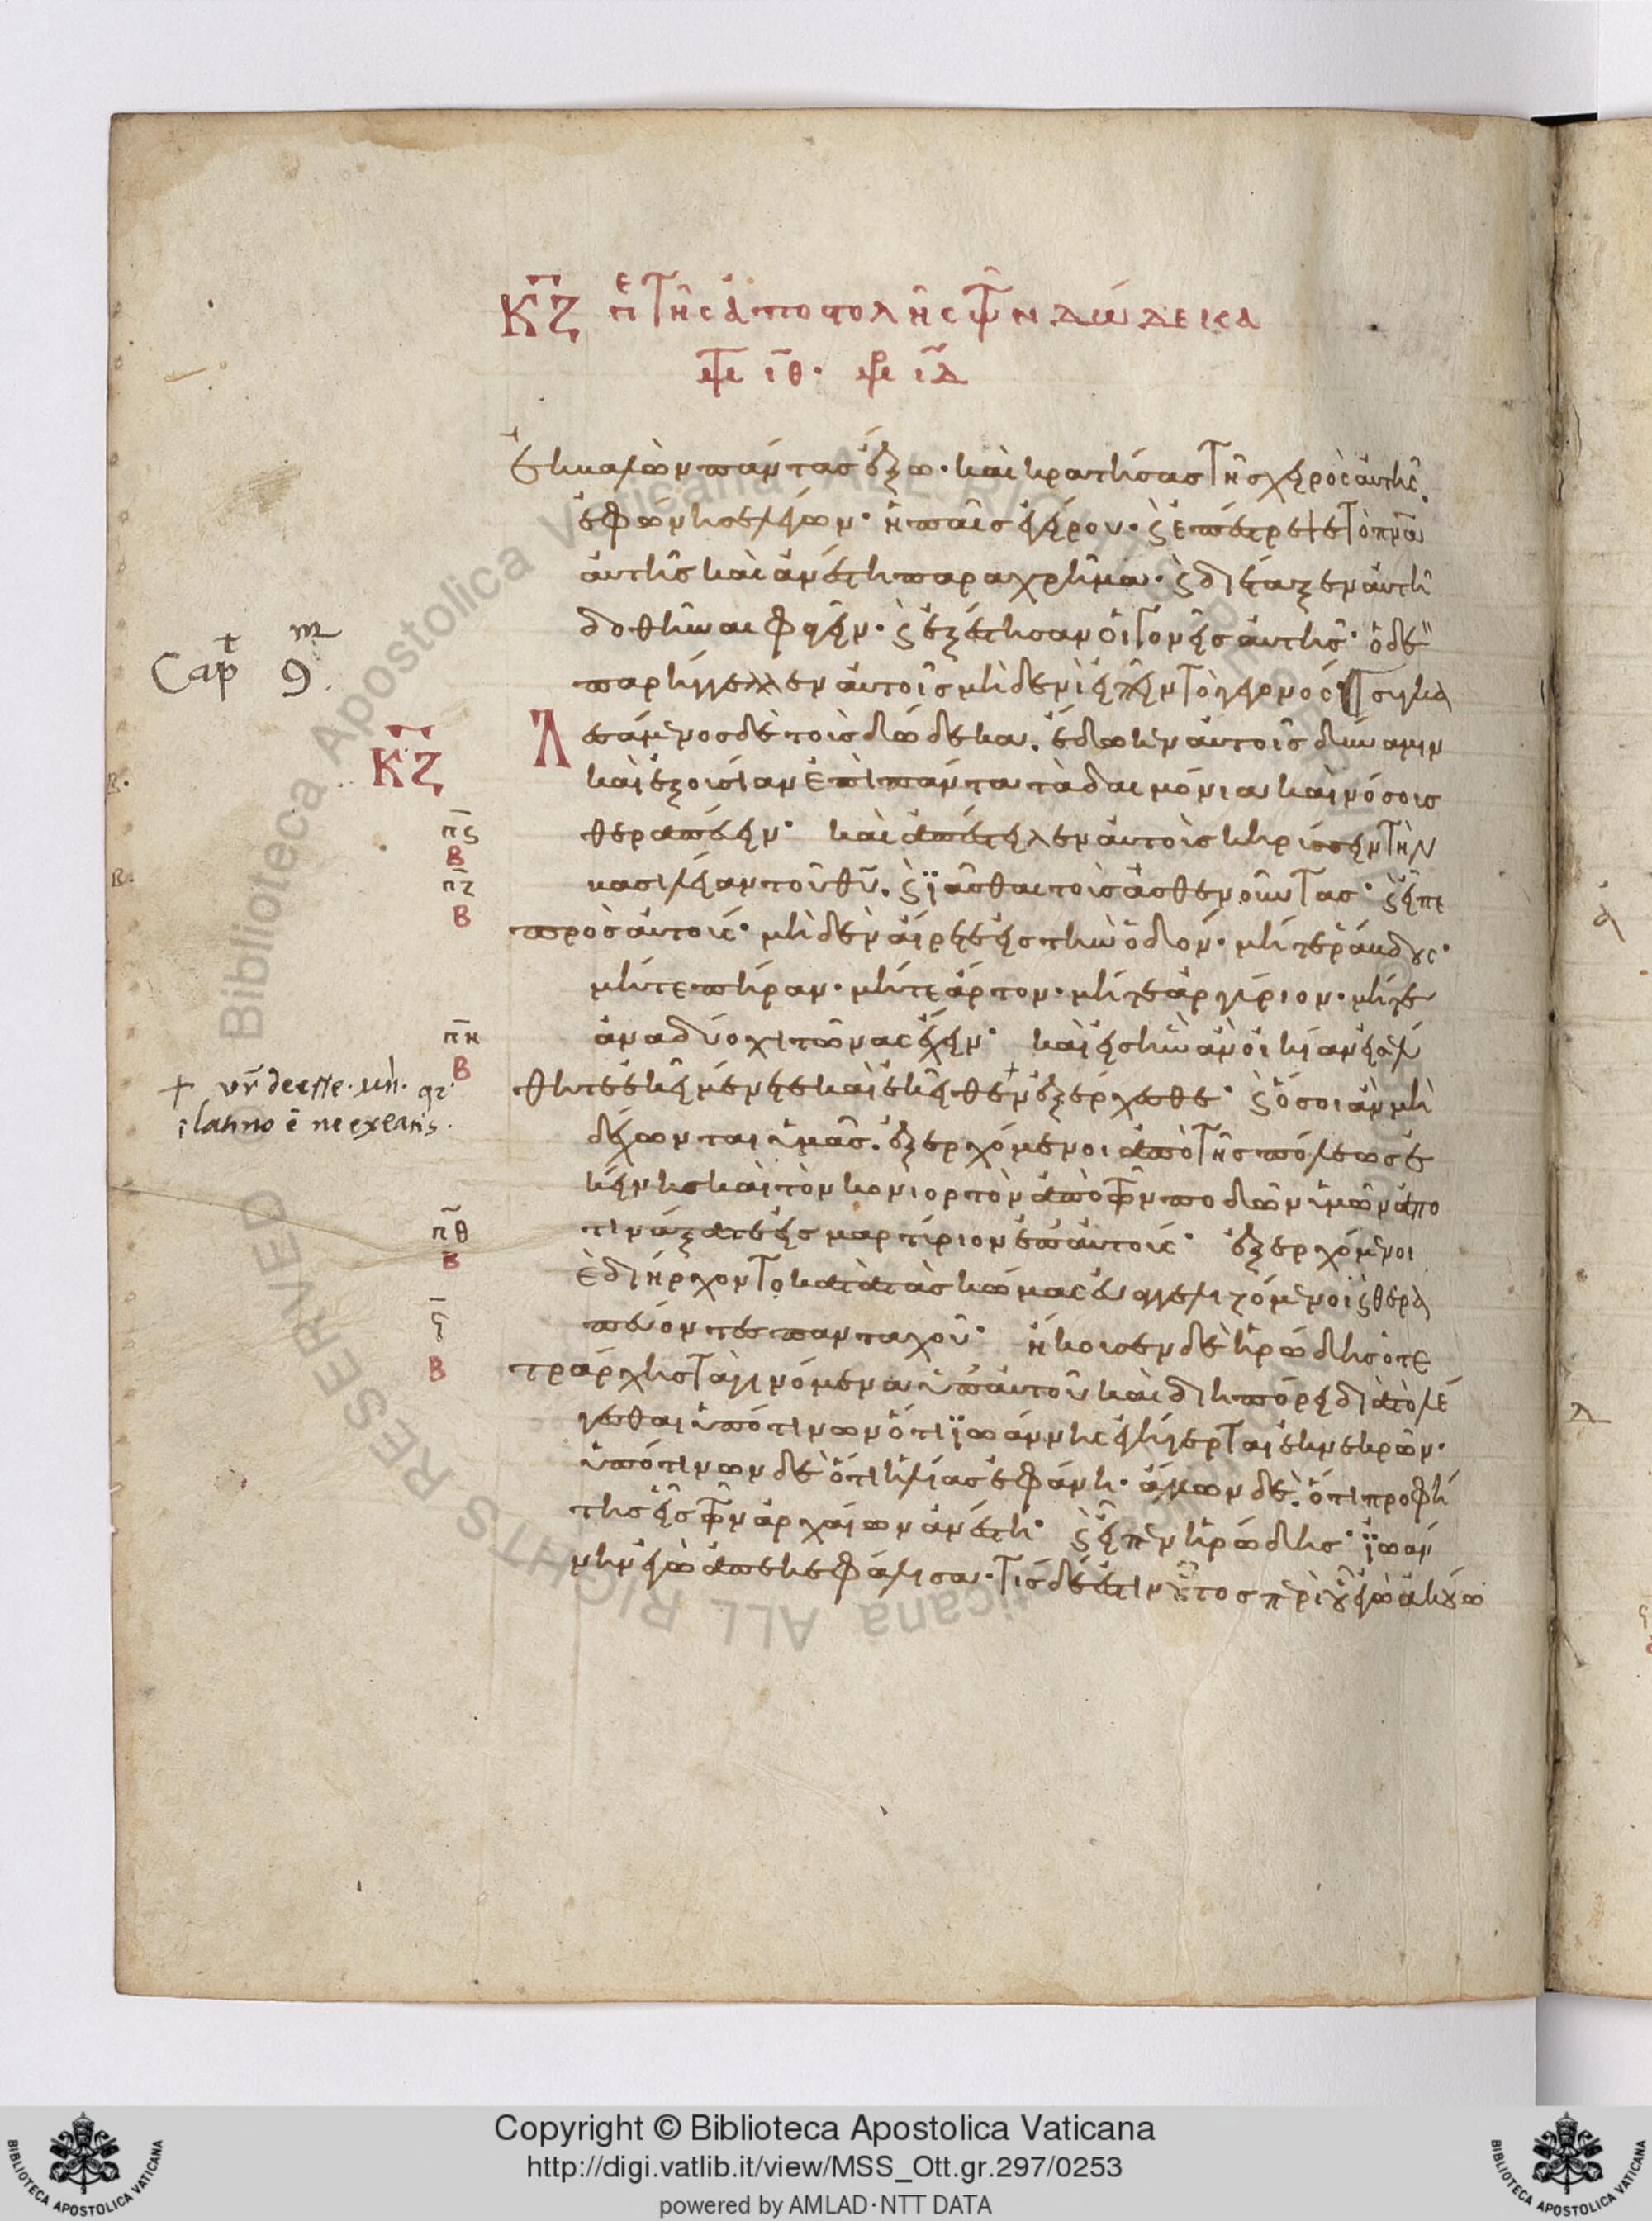 ΚΖ πε τῆς ἀποστολῆς τῶν δώδεκα
ιθ · ιδ
ἐκβαλὼν πάντας ἔξω · καὶ κρατήσας τῆς χειρὸς αὐτῆς
ἐφώνησε λέγων · ἡ παῖς ἐγείρου · ϛ ἐπέστρεψε τὸ πνα
αὐτῆς καὶ ἀνέστη παραχρῆμα · ϛ διέταξεν αὐτῆ
δοθῆναι φαγεῖν · ϛ ἐξέστησαν οἱ γονεῖς αὐτῆς · ὁ δὲ
παρήγγειλλεν αὐτοῖς μηδενὶ εἰπεῖν τὸ γεγονός · συγκα
Cap 9
ΚΖ
λεσάμενος δὲ τοὺς δώδεκα · ἔδωκεν αὐτοῖς δύναμιν
καὶ ἐξουσίαν ἐπὶ πάντα τὰ δαιμόνια καὶ νόσους
πϛ θεραπεύειν · καὶ ἀπέστειλεν αὐτοὺς κηρύσσειν τὴν
Β
πζ βασιλείαν τοῦ θυ · ϛ ϊᾶσθαι τοὺς ἀσθενοῦντας · ϛ εἶπε
Β πρὸς αὐτούς · μηδὲν αἴρετε εἰς τὴν ὁδόν · μήτε ράβδους ·
μήτε πήραν · μήτε ἄρτον · μήτε ἀργύριον · μήτε
πη ἀνα δύο χιτῶνας ἔχειν · καὶ εἰς ἣν ἂν οἰκίαν εἰσέλ
Β
θητε ἐκεῖ μένετε καὶ ἐκεῖθεν + ἐξέρχεσθε · ϛ ὅσοι ἂν μὴ
+ vr deesse. μη. qr
i latino ē ne exeatis.
δέχωνται ὑμᾶς · ἐξερχόμενοι ἀπὸ τῆς πόλεως ἐ
κείνης καὶ τὸν κονιορτὸν ἀπὸ τῶν ποδῶν ὑμῶν ἀπο
πθ τινάξατε εἰς μαρτύριον ἐπ αὐτούς · ἐξερχόμενοι
Β
δὲ διήρχοντο κατὰ τὰς κώμας εὐαγγελιζόμενοι ϛ θερα
πεύοντες πανταχοῦ · ἤκουσεν δὲ ἡρώδης ὁ τε
Β τράρχης τὰ γινόμενα ὑπ αὐτοῦ καὶ διηπόρει διὰ τὸ λέ
γεσθαι ὑπό τινων ὅτι ϊωάννης ἐγήγερται ἐκ νεκρῶν ·
ὑπό τινων δὲ ὅτι ἡλίας ἐφάνη · ἄλλων δὲ · ὅτι προφή
της εἷς τῶν ἀρχαίων ἀνέστη · ϛ εἶπεν ἡρώδης · ϊωάν
νην ἐγὼ ἀπεκεφάλισα · τίς δέ ἐστιν οὗτος περὶ οὗ ἐγὼ ἀκούω
Copyright © Biblioteca Apostolica Vaticana
http://digi.vatlib.it/view/MSS_Ott.gr.297/0253
powered by AMLAD·NTT DATA
BIBLIOTECA APOSTOLICA VATICANA
BIBLIOTECA APOSTOLICA VATICANA
Biblioteca Apostolica Vaticana ALL RIGHTS RESERVED